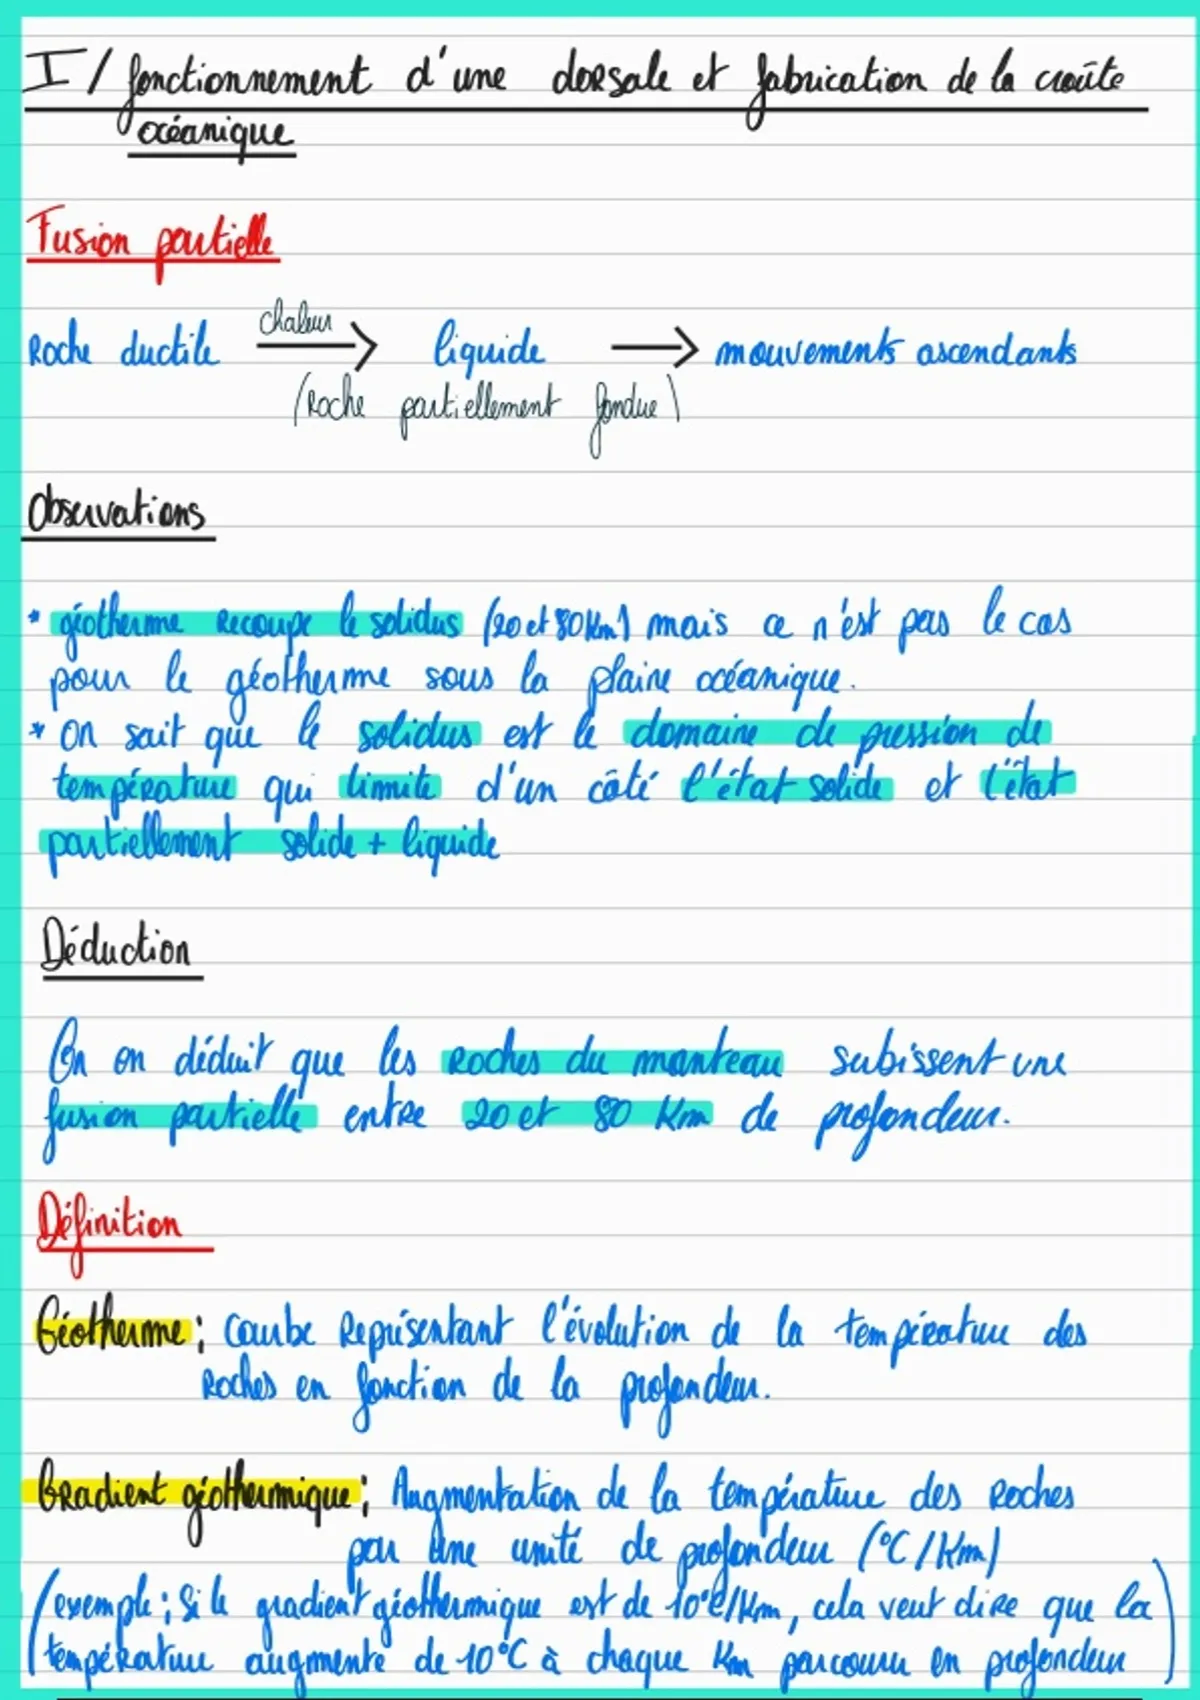 I/ fonctionnement d'une dorsale et fabrication de la croûte
océanique
Fusion partielle
Roche ductile chaleur → liquide → mouvements ascendants
(Roche partiellement fondue)
Observations
* géotherme recoupe le solidus (20 et 80 Km) mais ce n'est pas le cas
pour le géotherme sous la plaine océanique.
* On sait que le solidus est le domaine de pression de
température qui limite d'un côté l'état solide et l'état
partiellement solide + liquide
Déduction
On en déduit que les roches du manteau subissent une
fusion partielle entre 20 et 80 Km de profondeur.
Définition
Géotherme : Courbe Représentant l'évolution de la température des
Roches en fonction de la profondeur.
Gradient géothermique : Augmentation de la température des Roches
par une unité de profondeur (°C/Km)
(exemple : Si le gradient géothermique est de 10°C/Km, cela veut dire que la
température augmente de 10°C à chaque Km parcouru en profondeur)